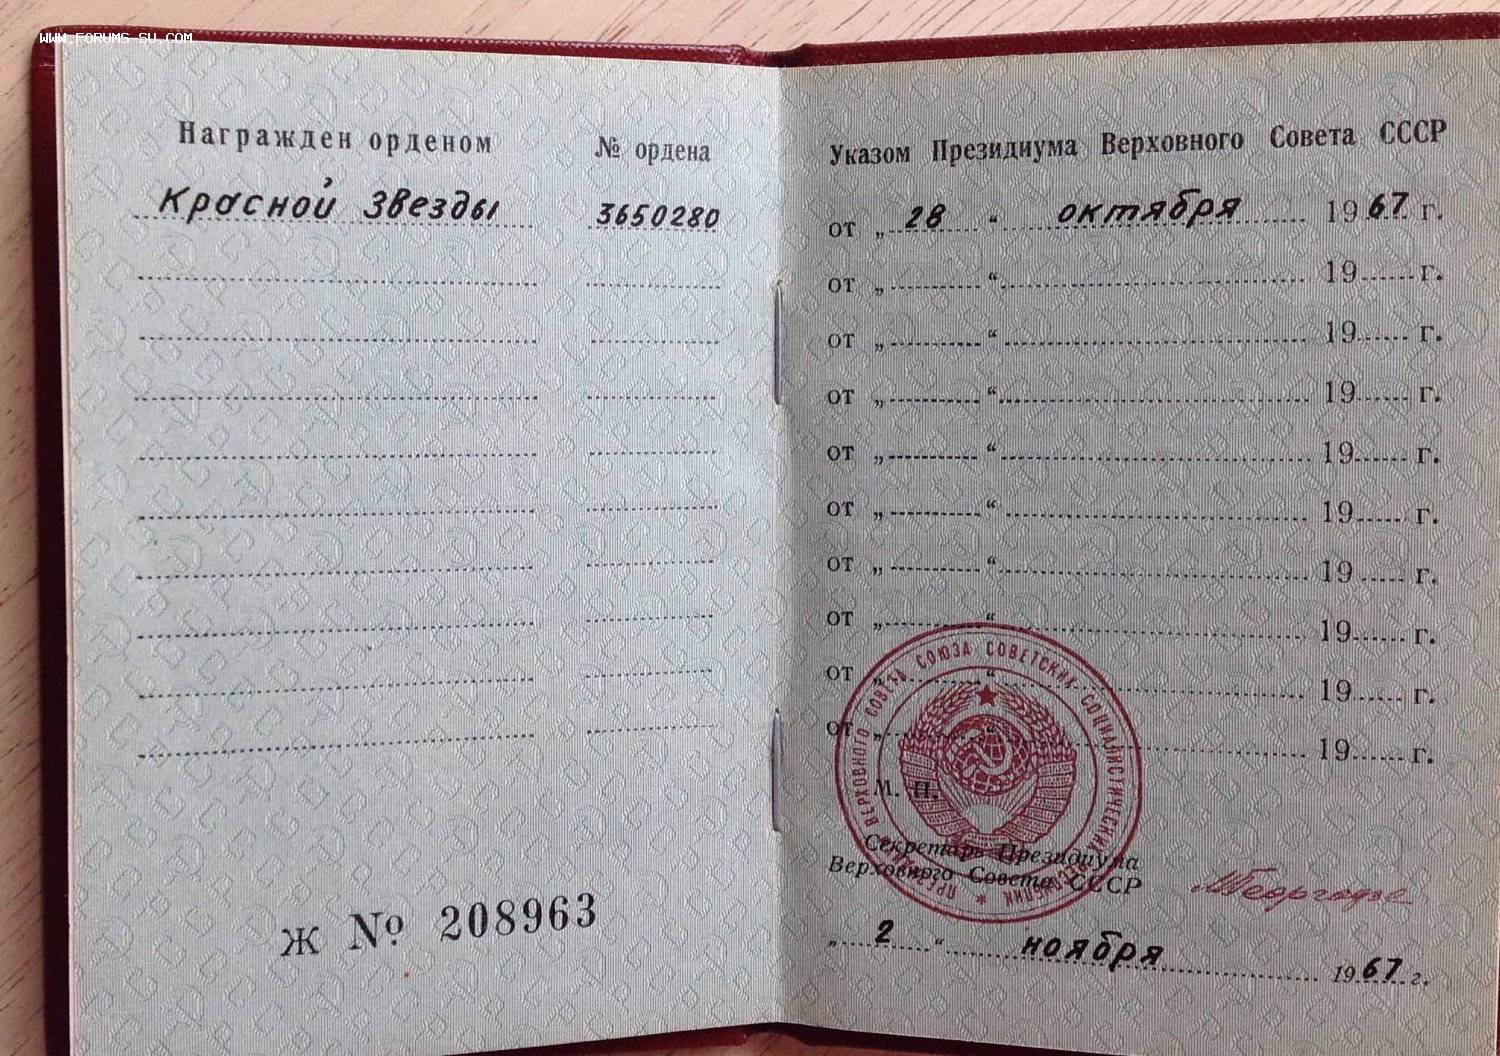 www.forums-su.com
Награжден орденом № ордена
Красной Звезды 3650280
Ж № 208963
Указом Президиума Верховного Совета СССР
от „ 28 “ октября 1967 г.
от „ “ 19 г.
от „ “ 19 г.
от „ “ 19 г.
от „ “ 19 г.
от „ “ 19 г.
от „ “ 19 г.
от „ “ 19 г.
от „ “ 19 г.
от „ “ 19 г.
М. П.
ПРЕЗИДИУМ ВЕРХОВНОГО СОВЕТА СОЮЗА СОВЕТСКИХ СОЦИАЛИСТИЧЕСКИХ РЕСПУБЛИК
Секретарь Президиума
Верховного Совета СССР
МГеоргадзе
„ 2 “ ноября 1967 г.